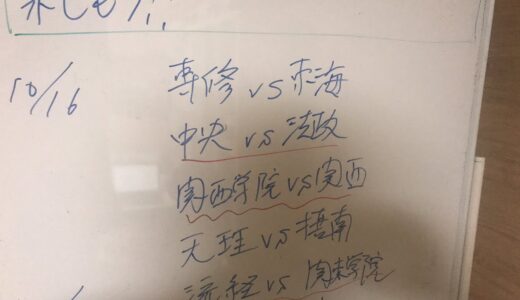 楽しもう!!
10/16
専修 vs 東海
中央 vs 法政
関西学院 vs 関西
天理 vs 摂南
流経 vs 関東学院